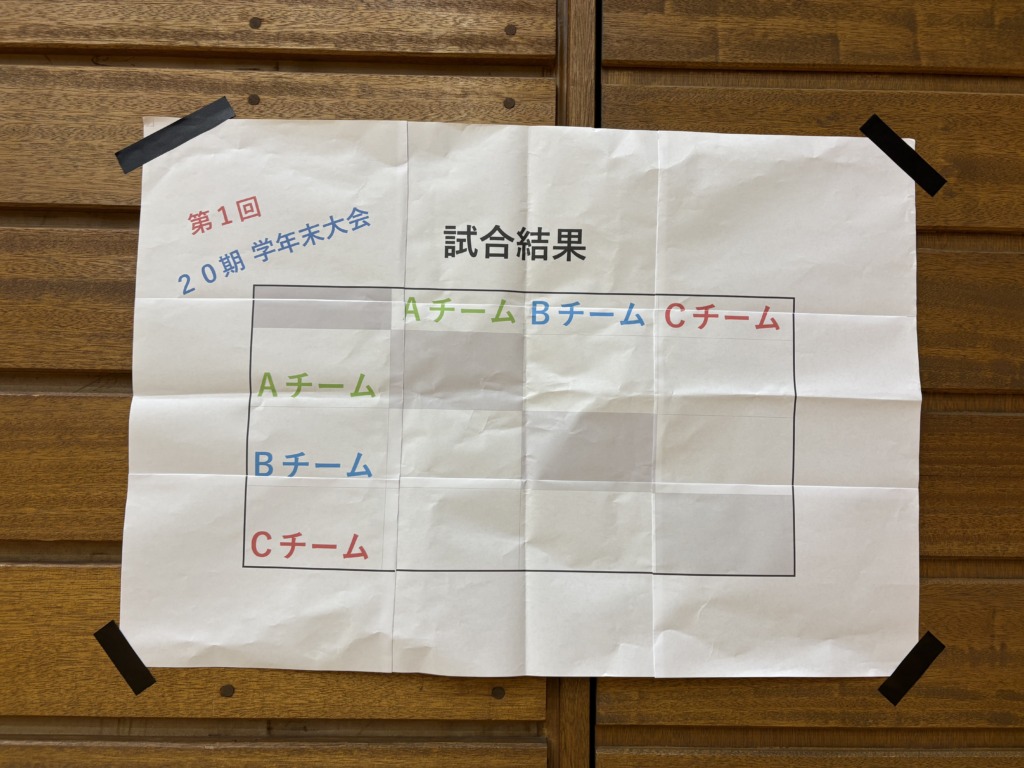 第１回
２０期 学年末大会
試合結果
Ａチーム Ｂチーム Ｃチーム
Ａチーム
Ｂチーム
Ｃチーム